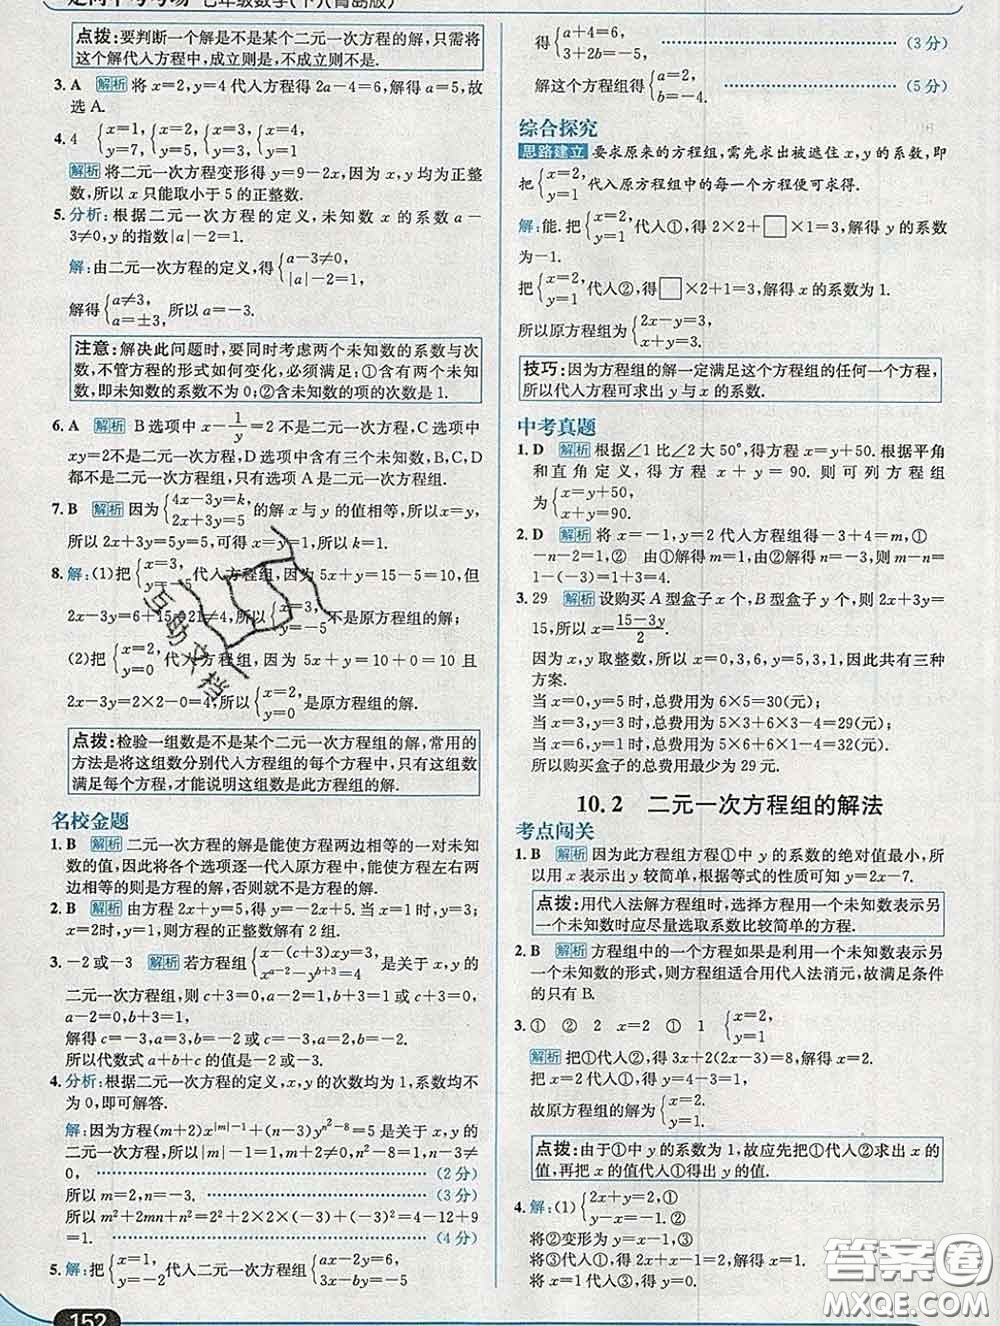 点拨:要判断一个解是不是某个二元一次方程的解,只需将
这个解代人方程中,成立则是,不成立则不是.
3. A 解析 将 x=2,y=4 代人方程得 2a-4=6,解得 a=5,故
选 A.
4. 4 {x=1, y=7, {x=2, y=5, {x=3, y=3, {x=4, y=1
解析 将二元一次方程变形得 y=9-2x,因为 x,y 均为正整
数,所以 x 只能取小于 5 的正整数.
5. 分析:根据二元一次方程的定义,未知数 x 的系数 a-
3≠0,y 的指数|a|-2=1.
解:由二元一次方程的定义,得{a-3≠0, |a|-2=1,
解得{a≠3, a=±3, 所以 a=-3.
注意:解决此问题时,要同时考虑两个未知数的系数与次
数,不管方程的形式如何变化,必须满足:①含有两个未知
数,即未知数的系数不为 0;②含未知数的项的次数是 1.
6. A 解析 B 选项中 x-1/y=2 不是二元一次方程,C 选项中
xy=2不是二元一次方程,D 选项中含有三个未知数,B,C,D
都不是二元一次方程组,只有选项 A 是二元一次方程组.
7. B 解析 因为{4x-3y=k, 2x+3y=5 的解 x 与 y 的值相等,所以x=y,
所以 2x+3y=5y=5,可得 x=y=1,所以 k=1.
8. 解:(1)把{x=3, y=-5 代人方程组,因为 5x+y=15-5=10,但
2x-3y=6+15=21≠4,所以{x=3, y=-5 不是原方程组的解.
(2)把{x=2, y=0 代人方程组,因为 5x+y=10+0=10 且
2x-3y=2×2-0=4,所以{x=2, y=0 是原方程组的解.
点拨:检验一组数是不是某个二元一次方程组的解,常用的
方法是将这组数分别代人方程组的每个方程,只有这组数
满足每个方程,才能说明这组数是此方程组的解.
名校金题
1. B 解析 二元一次方程的解是能使方程两边相等的一对未知
数的值,因此将各个选项逐一代人原方程中,能使方程左右两
边相等的则是方程的解,否则就不是方程的解.
2. B 解析 由方程 2x+y=5,得 y=-2x+5.当 x=1 时,y=3;
x=2 时,y=1,则方程的正整数解有 2 组.
3. -2或-3 解析 若方程组{x-(c+3)xy=3, x^(a-2)-y^(b+3)=4 是关于 x,y 的
二元一次方程组,则 c+3=0,a-2=1,b+3=1 或 c+3=0,
a-2=0,b+3=1,
解得 c=-3,a=3,b=-2 或 c=-3,a=2,b=-2.
所以代数式 a+b+c 的值是-2 或-3.
4. 分析:根据二元一次方程的定义,x,y 的次数均为 1,系数均不
为 0,即可解答.
解:因为方程(m+2)x^(|m|-1)+(n-3)y^(n²-8)=5 是关于 x,y 的
二元一次方程,所以|m|-1=1,m+2≠0,n²-8=1,n-3≠
0, (2 分)
所以 m=2,n=-3. (3 分)
所以 m²+2mn+n²=2²+2×2×(-3)+(-3)²=4-12+9
=1. (4 分)
5. 解:把{x=1, y=-2 代人二元一次方程组{ax-2y=6, 3x-by=-5
152
得{a+4=6, 3+2b=-5. (3 分)
解这个方程组得{a=2, b=-4. (5 分)
综合探究
思路建立 要求原来的方程组,需先求出被遮住 x,y 的系数,即
把{x=2, y=1 代入原方程组中的每一个方程便可求得.
解:能.把{x=2, y=1 代人①,得 2×2+□×1=3,解得 y 的系数
为-1.
把{x=2, y=1 代人②,得□×2+1=3,解得 x 的系数为 1.
所以原方程组为{2x-y=3, x+y=3.
技巧:因为方程组的解一定满足这个方程组的任何一个方程,
所以代人方程可求出 y 与 x 的系数.
中考真题
1. D 解析 根据∠1 比∠2 大 50°,得方程 x=y+50.根据平角
和直角定义,得方程 x+y=90.则可列方程组
为{x=y+50, x+y=90.
2. D 解析 将 x=-1,y=2 代人方程组得-3+4=m,①
-n-2=1 ② 由①解得 m=1,由②解得 n=-3,则 m-n=
1-(-3)=4.
3. 29 解析 设购买 A 型盒子 x 个,B 型盒子 y 个,则 2x+3y=
15,所以 x=(15-3y)/2.
因为 x,y 取整数,所以 x=0,3,6,y=5,3,1,因此共有三种
方案.
当 x=0,y=5 时,总费用为 6×5=30(元);
当 x=3,y=3 时,总费用为 5×3+6×3-4=29(元);
当 x=6,y=1 时,总费用为 5×6+6×1-4=32(元).
所以购买盒子的总费用最少为 29 元.
10.2 二元一次方程组的解法
考点闯关
1. B 解析 因为此方程组方程①中 y 的系数的绝对值最小,所
以用 x 表示出 y 较简单,根据等式的性质可知 y=2x-7.
点拨:用代人法解方程组时,选择方程用一个未知数表示另
一个未知数时应尽量选取系数比较简单的方程.
2. B 解析 方程组中的一个方程如果是利用一个未知数表示另
一个未知数的形式,则方程组适合用代人法消元,故满足条件
的只有 B.
3. ① ② 2 x=2 ① 1 {x=2, y=1
解析 把①代人②得:3x+2(x-1)=8,解得 x=2.
把 x=2 代人①,得 y=4-3=1.
故原方程组的解为{x=2, y=1.
点拨:由于①中 y 的系数为 1,故应先把①代人②求出 x 的
值,再把 x 的值代人①得出 y 的值.
4. 解:(1){2x+y=2,① x-y=1.②
将②变形为 y=x-1,③
将③代人①,得 2x+x-1=2,解得 x=1,
将 x=1 代人③,得 y=0.
互助文档
答案圈
MXQE.COM